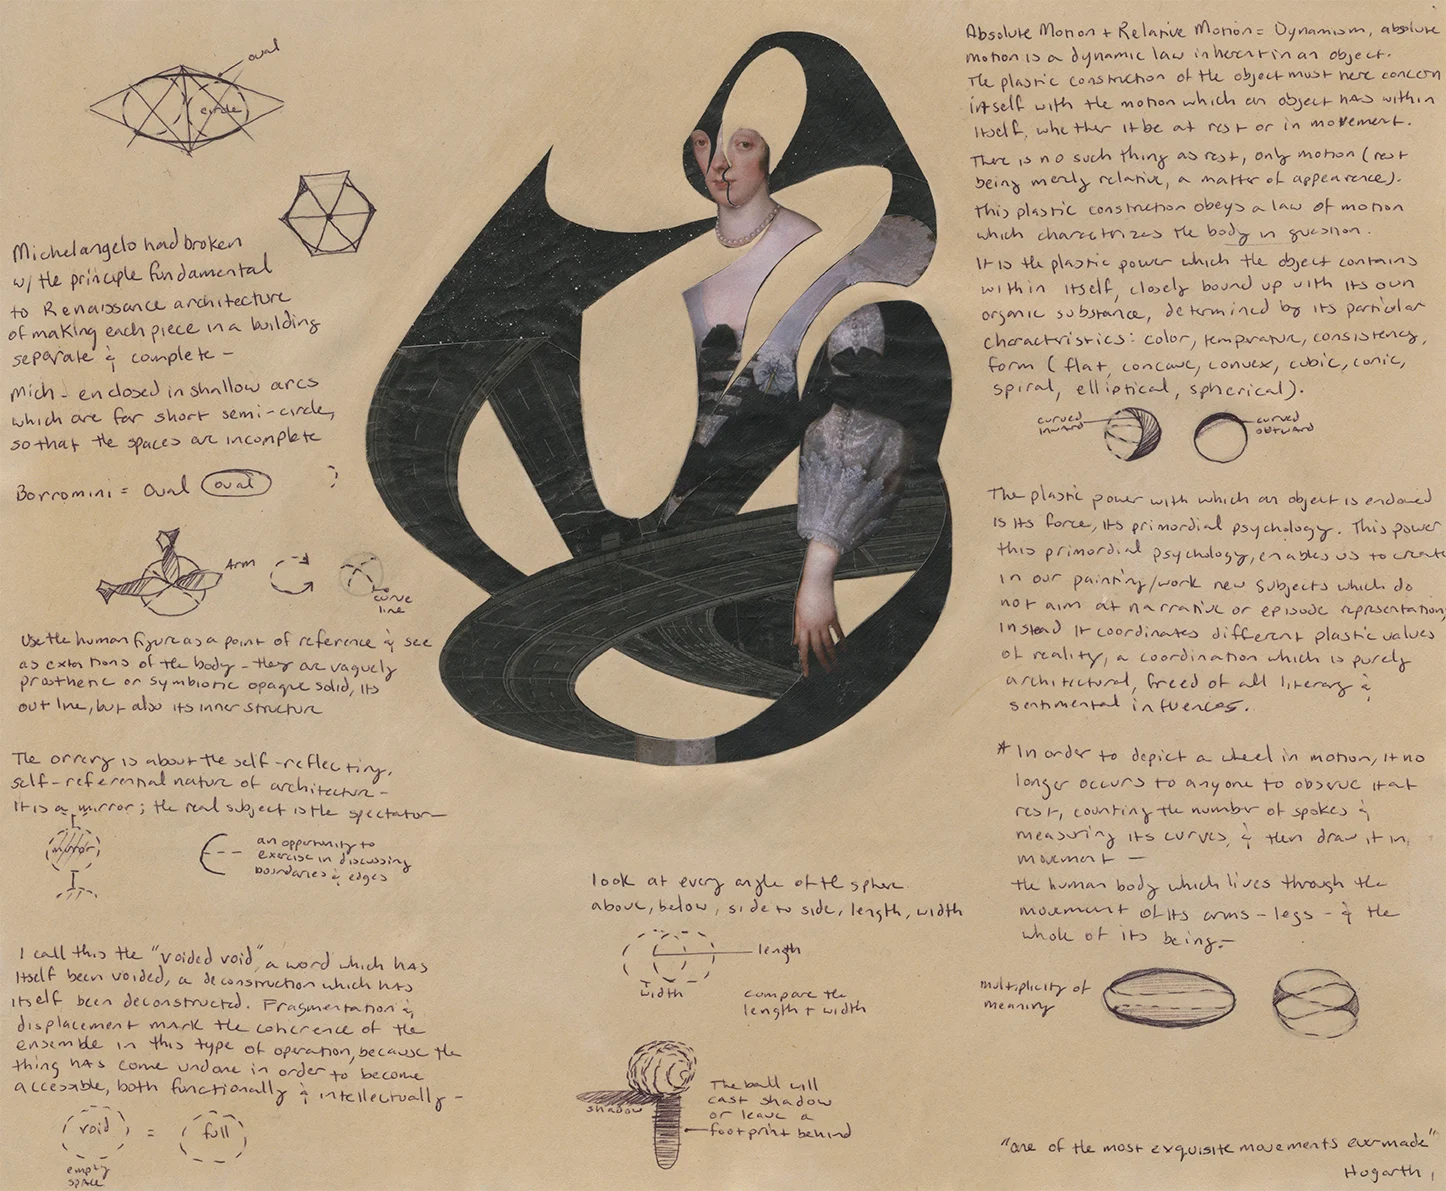 oval
circle
Michelangelo had broken
w/ the principle fundamental
to Renaissance architecture
of making each piece in a building
separate & complete –
Mich – enclosed in shallow arcs
which are far short semi-circle,
so that the spaces are incomplete
Borromini = Oval oval
Arm
curve
line
Use the human figure as a point of reference & see
as extentions of the body – they are vaguely
prosthetic or symbiotic opaque solid, its
out line, but also its inner structure
The orrery is about the self-reflecting,
self-referential nature of architecture –
It is a mirror; the real subject is the spectator –
mirror
an opportunity to
exercise in discussing
boundaries & edges
I call this the "voided void", a word which has
itself been voided, a deconstruction which has
itself been deconstructed. Fragmentation &
displacement mark the coherence of the
ensemble in this type of operation, because the
thing has come undone in order to become
accessible, both functionally & intellectually –
void = full
empty
space
look at every angle of the sphere.
above, below, side to side, length, width
length
width
compare the
length + width
shadow
The ball will
cast shadow
or leave a
footprint behind
Absolute Motion + Relative Motion = Dynamism, absolute
motion is a dynamic law inherent in an object.
The plastic construction of the object must here concern
itself with the motion which an object has within
itself, whether it be at rest or in movement.
There is no such thing as rest, only motion (rest
being merly relative, a matter of appearence).
This plastic construction obeys a law of motion
which characterizes the body in question.
It is the plastic power which the object contains
within itself, closely bound up with its own
organic substance, determined by its particular
characteristics: color, temprature, consistency,
form (flat, concave, convex, cubic, conic,
spiral, elliptical, spherical).
curved
inward
curved
outward
The plastic power with which an object is endowed
is its force, its primordial psychology. This power
this primordial psychology, enables us to create
in our painting/work new subjects which do
not aim at narrative or episode representation,
instead it coordinates different plastic values
of reality, a coordination which is purely
architectural, freed of all literary &
sentimental influences.
* In order to depict a wheel in motion, it no
longer occurs to anyone to observe it at
rest, counting the number of spokes &
measuring its curves, & then draw it in
movement —
the human body which lives through the
movement of its arms – legs – & the
whole of its being. –
multiplicity of
meaning
"one of the most exquisite movements ever made"
Hogarth